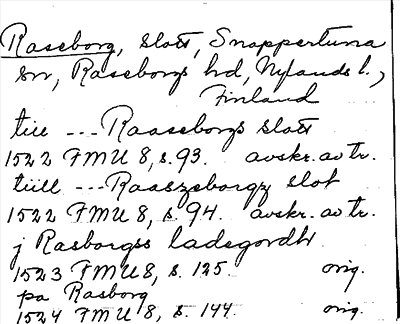 Raseborg, slott, Snappertuna
sn, Raseborgs hd, Nylands l.,
Finland
till --- Raaseborgs slott
1522 FMU 8, s. 93. avskr. av tr.
tiill --- Raaszeborgz slot
1522 FMU 8, s. 94. avskr. av tr.
j Rasborgss ladegordh
1523 FMU 8, s. 125. orig.
pa Rasborg
1524 FMU 8, s. 144. orig.